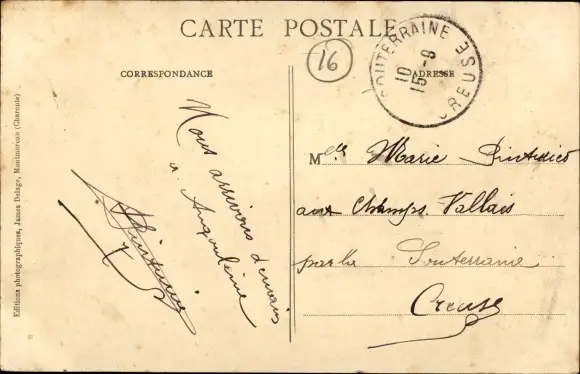 CARTE POSTALE
16
CORRESPONDANCE
ADRESSE
SOUTERRAINE
CREUSE
10
15 - 8
Nous arrivons demain
à Angoulême
Mlle Marie
aux Champs Vallais
par la Souterraine
Creuse
Editions photographiques, James Delage, Montmoreau (Charente)